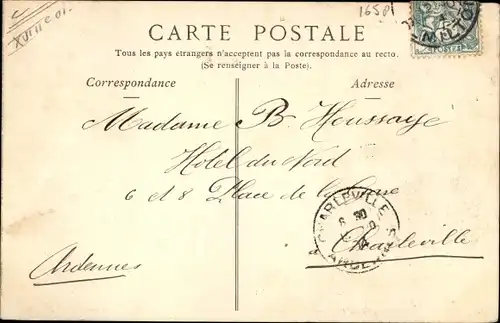 16581
XVIIIe 01.
CARTE POSTALE
Tous les pays étrangers n'acceptent pas la correspondance au recto.
(Se renseigner à la Poste).
Correspondance Adresse
Madame B. Houssaye
Hotel du Nord
6 et 8 Place de la Gare
Charleville
Ardennes
CHARLEVILLE
ARDENNES
POSTES